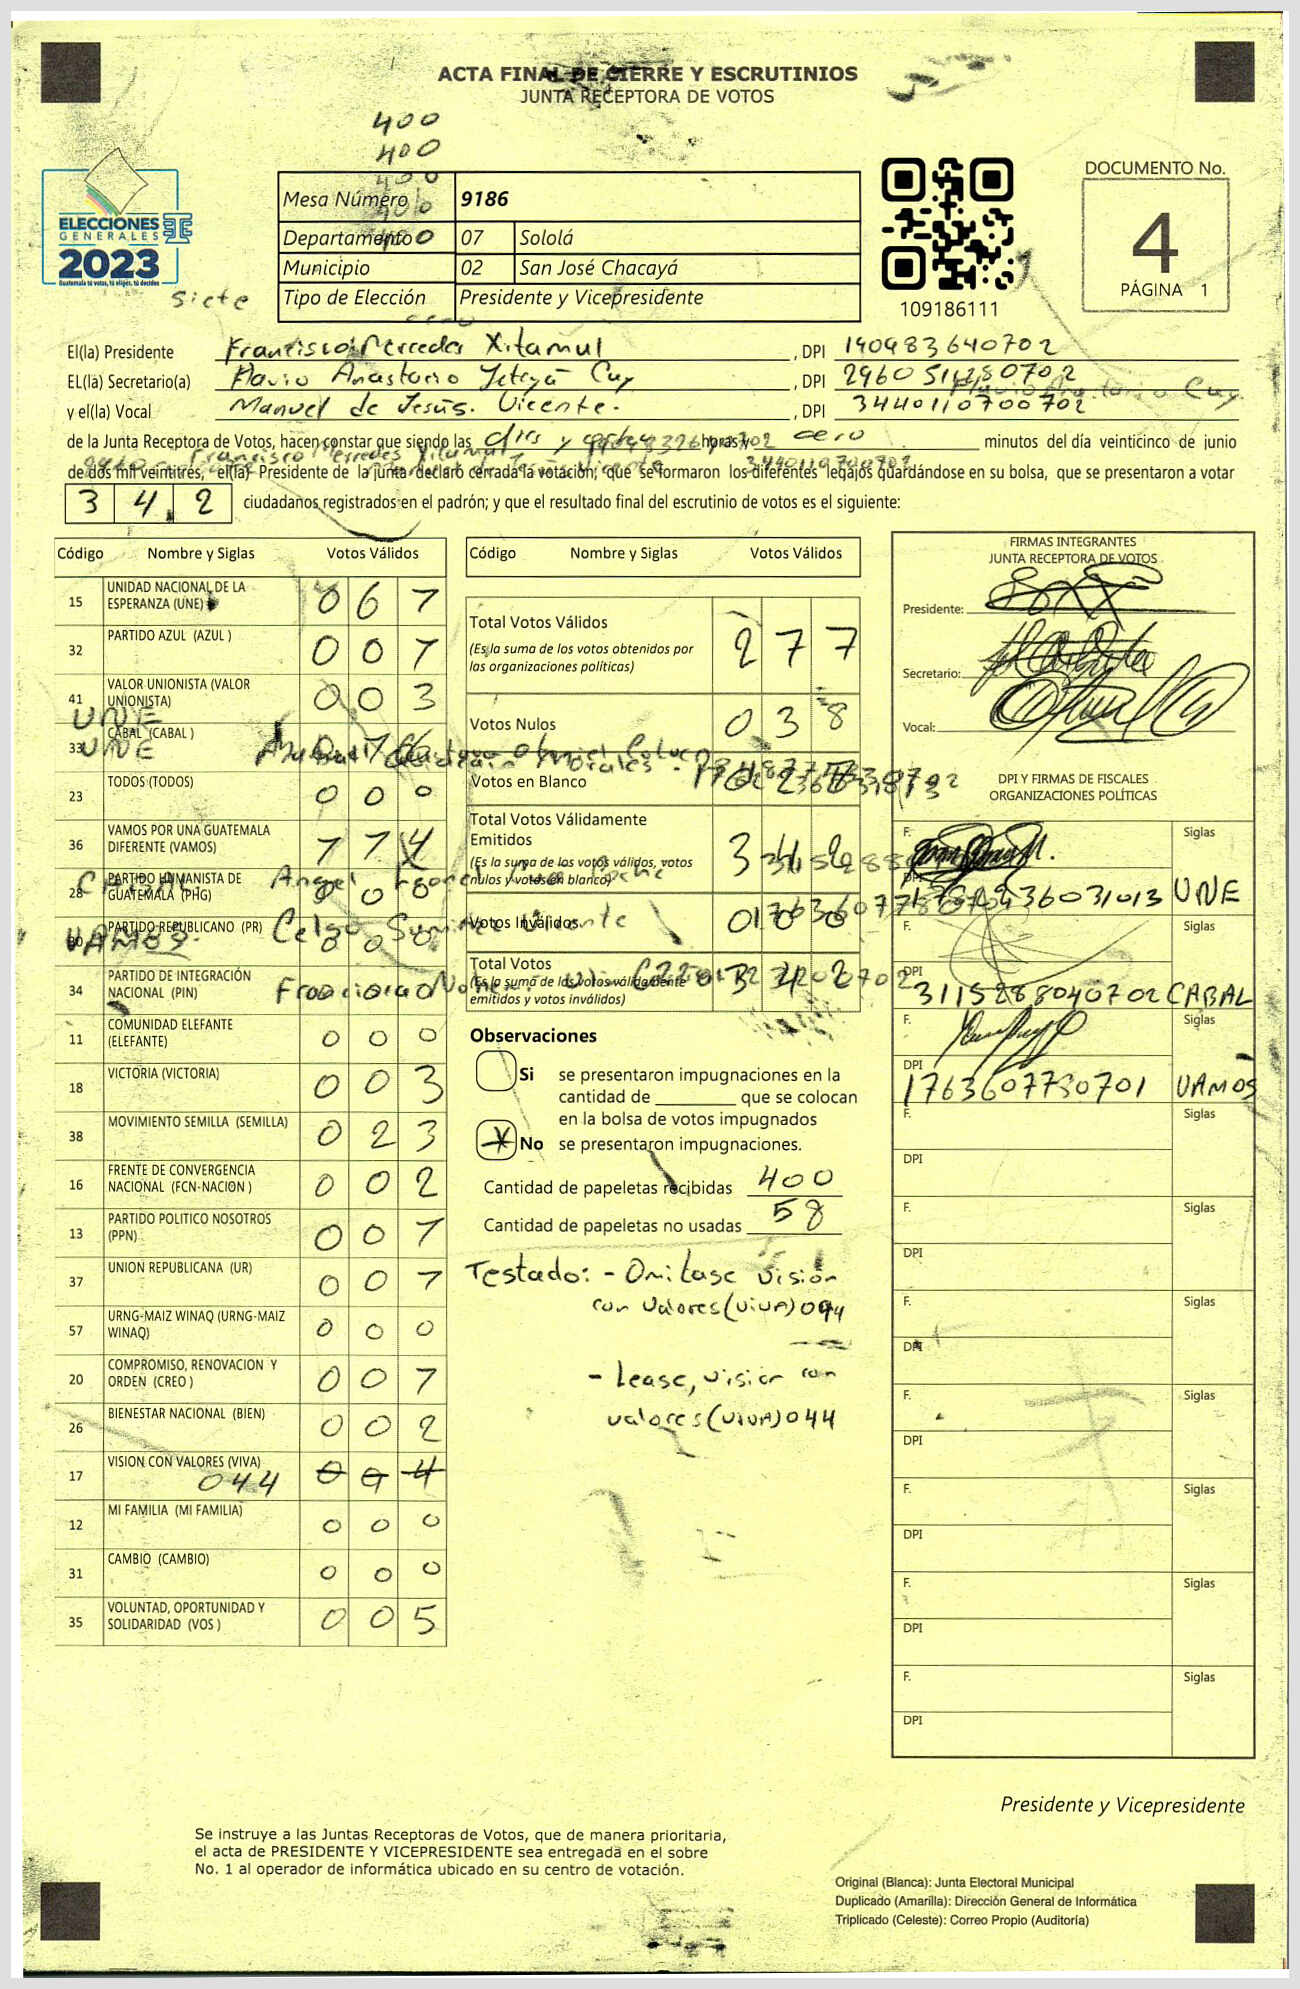 ACTA FINAL DE CIERRE Y ESCRUTINIOS
JUNTA RECEPTORA DE VOTOS
400
400
400
400
400
ELECCIONES
GENERALES
2023
Guatemala tú votas, tú eliges, tú decides
Mesa Número 9186
Departamento 07 Sololá
Municipio 02 San José Chacayá
Tipo de Elección Presidente y Vicepresidente
109186111
DOCUMENTO No.
4
PÁGINA 1
siete
cero
El(la) Presidente Francisco Perredes Xitamul , DPI 190483640702
EL(la) Secretario(a) Flavio Anastacio , DPI 2960511280702
y el(la) Vocal Manuel de Jesús. Vicente. , DPI 3440110700702
de la Junta Receptora de Votos, hacen constar que siendo las horas y cero minutos del día veinticinco de junio
de dos mil veintitres, el(la) Presidente de la junta declaró cerrada la votación; que se formaron los diferentes legajos guardándose en su bolsa, que se presentaron a votar
342 ciudadanos registrados en el padrón; y que el resultado final del escrutinio de votos es el siguiente:
Código Nombre y Siglas Votos Válidos
15 UNIDAD NACIONAL DE LA ESPERANZA (UNE) 067
32 PARTIDO AZUL (AZUL ) 001
41 VALOR UNIONISTA (VALOR UNIONISTA) 003
UNE
33 CABAL (CABAL ) 016
UNE
23 TODOS (TODOS) 000
36 VAMOS POR UNA GUATEMALA DIFERENTE (VAMOS) 114
28 PARTIDO HUMANISTA DE GUATEMALA (PHG) 000
30 PARTIDO REPUBLICANO (PR) 000
VAMOS.
34 PARTIDO DE INTEGRACIÓN NACIONAL (PIN) 000
11 COMUNIDAD ELEFANTE (ELEFANTE) 000
18 VICTORIA (VICTORIA) 003
38 MOVIMIENTO SEMILLA (SEMILLA) 023
16 FRENTE DE CONVERGENCIA NACIONAL (FCN-NACION ) 002
13 PARTIDO POLITICO NOSOTROS (PPN) 001
37 UNION REPUBLICANA (UR) 001
57 URNG-MAIZ WINAQ (URNG-MAIZ WINAQ) 000
20 COMPROMISO, RENOVACION Y ORDEN (CREO ) 001
26 BIENESTAR NACIONAL (BIEN) 002
17 VISION CON VALORES (VIVA) 044 094
12 MI FAMILIA (MI FAMILIA) 000
31 CAMBIO (CAMBIO) 000
35 VOLUNTAD, OPORTUNIDAD Y SOLIDARIDAD (VOS ) 005
Código Nombre y Siglas Votos Válidos
Total Votos Válidos 277
(Es la suma de los votos obtenidos por
las organizaciones políticas)
Votos Nulos 038
Votos en Blanco
Total Votos Válidamente
Emitidos 342
(Es la suma de los votos válidos, votos
nulos y votos en blanco)
Votos Inválidos 000
Total Votos 342
(Es la suma de los votos válidamente
emitidos y votos inválidos)
Observaciones
Si se presentaron impugnaciones en la
cantidad de que se colocan
en la bolsa de votos impugnados
X No se presentaron impugnaciones.
Cantidad de papeletas recibidas 400
Cantidad de papeletas no usadas 58
Testado: - Omitase visión
con valores(VIVA)094
- Lease, visión con
valores(VIVA)044
FIRMAS INTEGRANTES
JUNTA RECEPTORA DE VOTOS
Presidente:
Secretario:
Vocal:
DPI Y FIRMAS DE FISCALES
ORGANIZACIONES POLÍTICAS
F. Siglas
DPI UNE
F. Siglas
DPI 3115288040702 CABAL
F. Siglas
DPI 1763607730701 VAMOS
F. Siglas
DPI
F. Siglas
DPI
F. Siglas
DPI
F. Siglas
DPI
F. Siglas
DPI
F. Siglas
DPI
F. Siglas
DPI
Presidente y Vicepresidente
Se instruye a las Juntas Receptoras de Votos, que de manera prioritaria,
el acta de PRESIDENTE Y VICEPRESIDENTE sea entregada en el sobre
No. 1 al operador de informática ubicado en su centro de votación.
Original (Blanca): Junta Electoral Municipal
Duplicado (Amarilla): Dirección General de Informática
Triplicado (Celeste): Correo Propio (Auditoría)